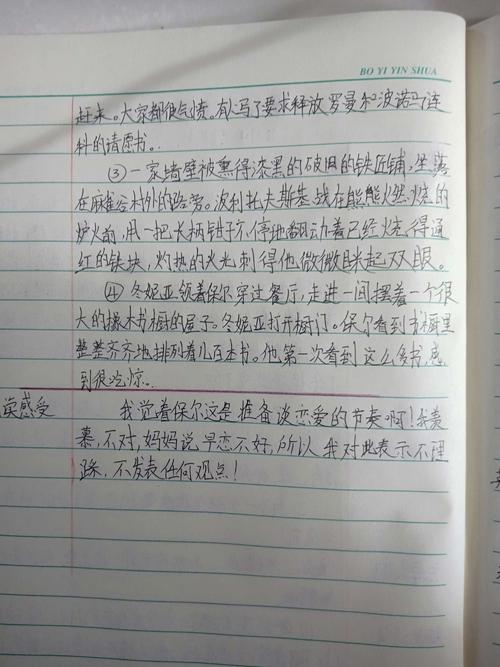 BO YI YIN SHUA
赶来。大家都很气愤,有人写了要求释放罗曼和波诺马连
科的请愿书。
③一家墙壁被熏得漆黑的破旧的铁匠铺,坐落
在麻雀谷村外的路旁。波利托夫斯基战在熊熊火然烧的
炉火前,用一把长柄钳子不停地翻动着已经烧得通
红的铁块,灼热的火光刺得他微微眯起双眼。
④冬妮亚领着保尔穿过餐厅,走进一间摆着一个很
大的橡木书橱的屋子。冬妮亚打开橱门。保尔看到书橱里
整整齐齐地排列着几百本书。他第一次看到这么多书,感
到很吃惊。
读感受
我觉着保尔这是准备谈恋爱的节奏啊!我羡
慕,不对,妈妈说早恋不好,所以我对此表示不理
踩,不发表任何观点!